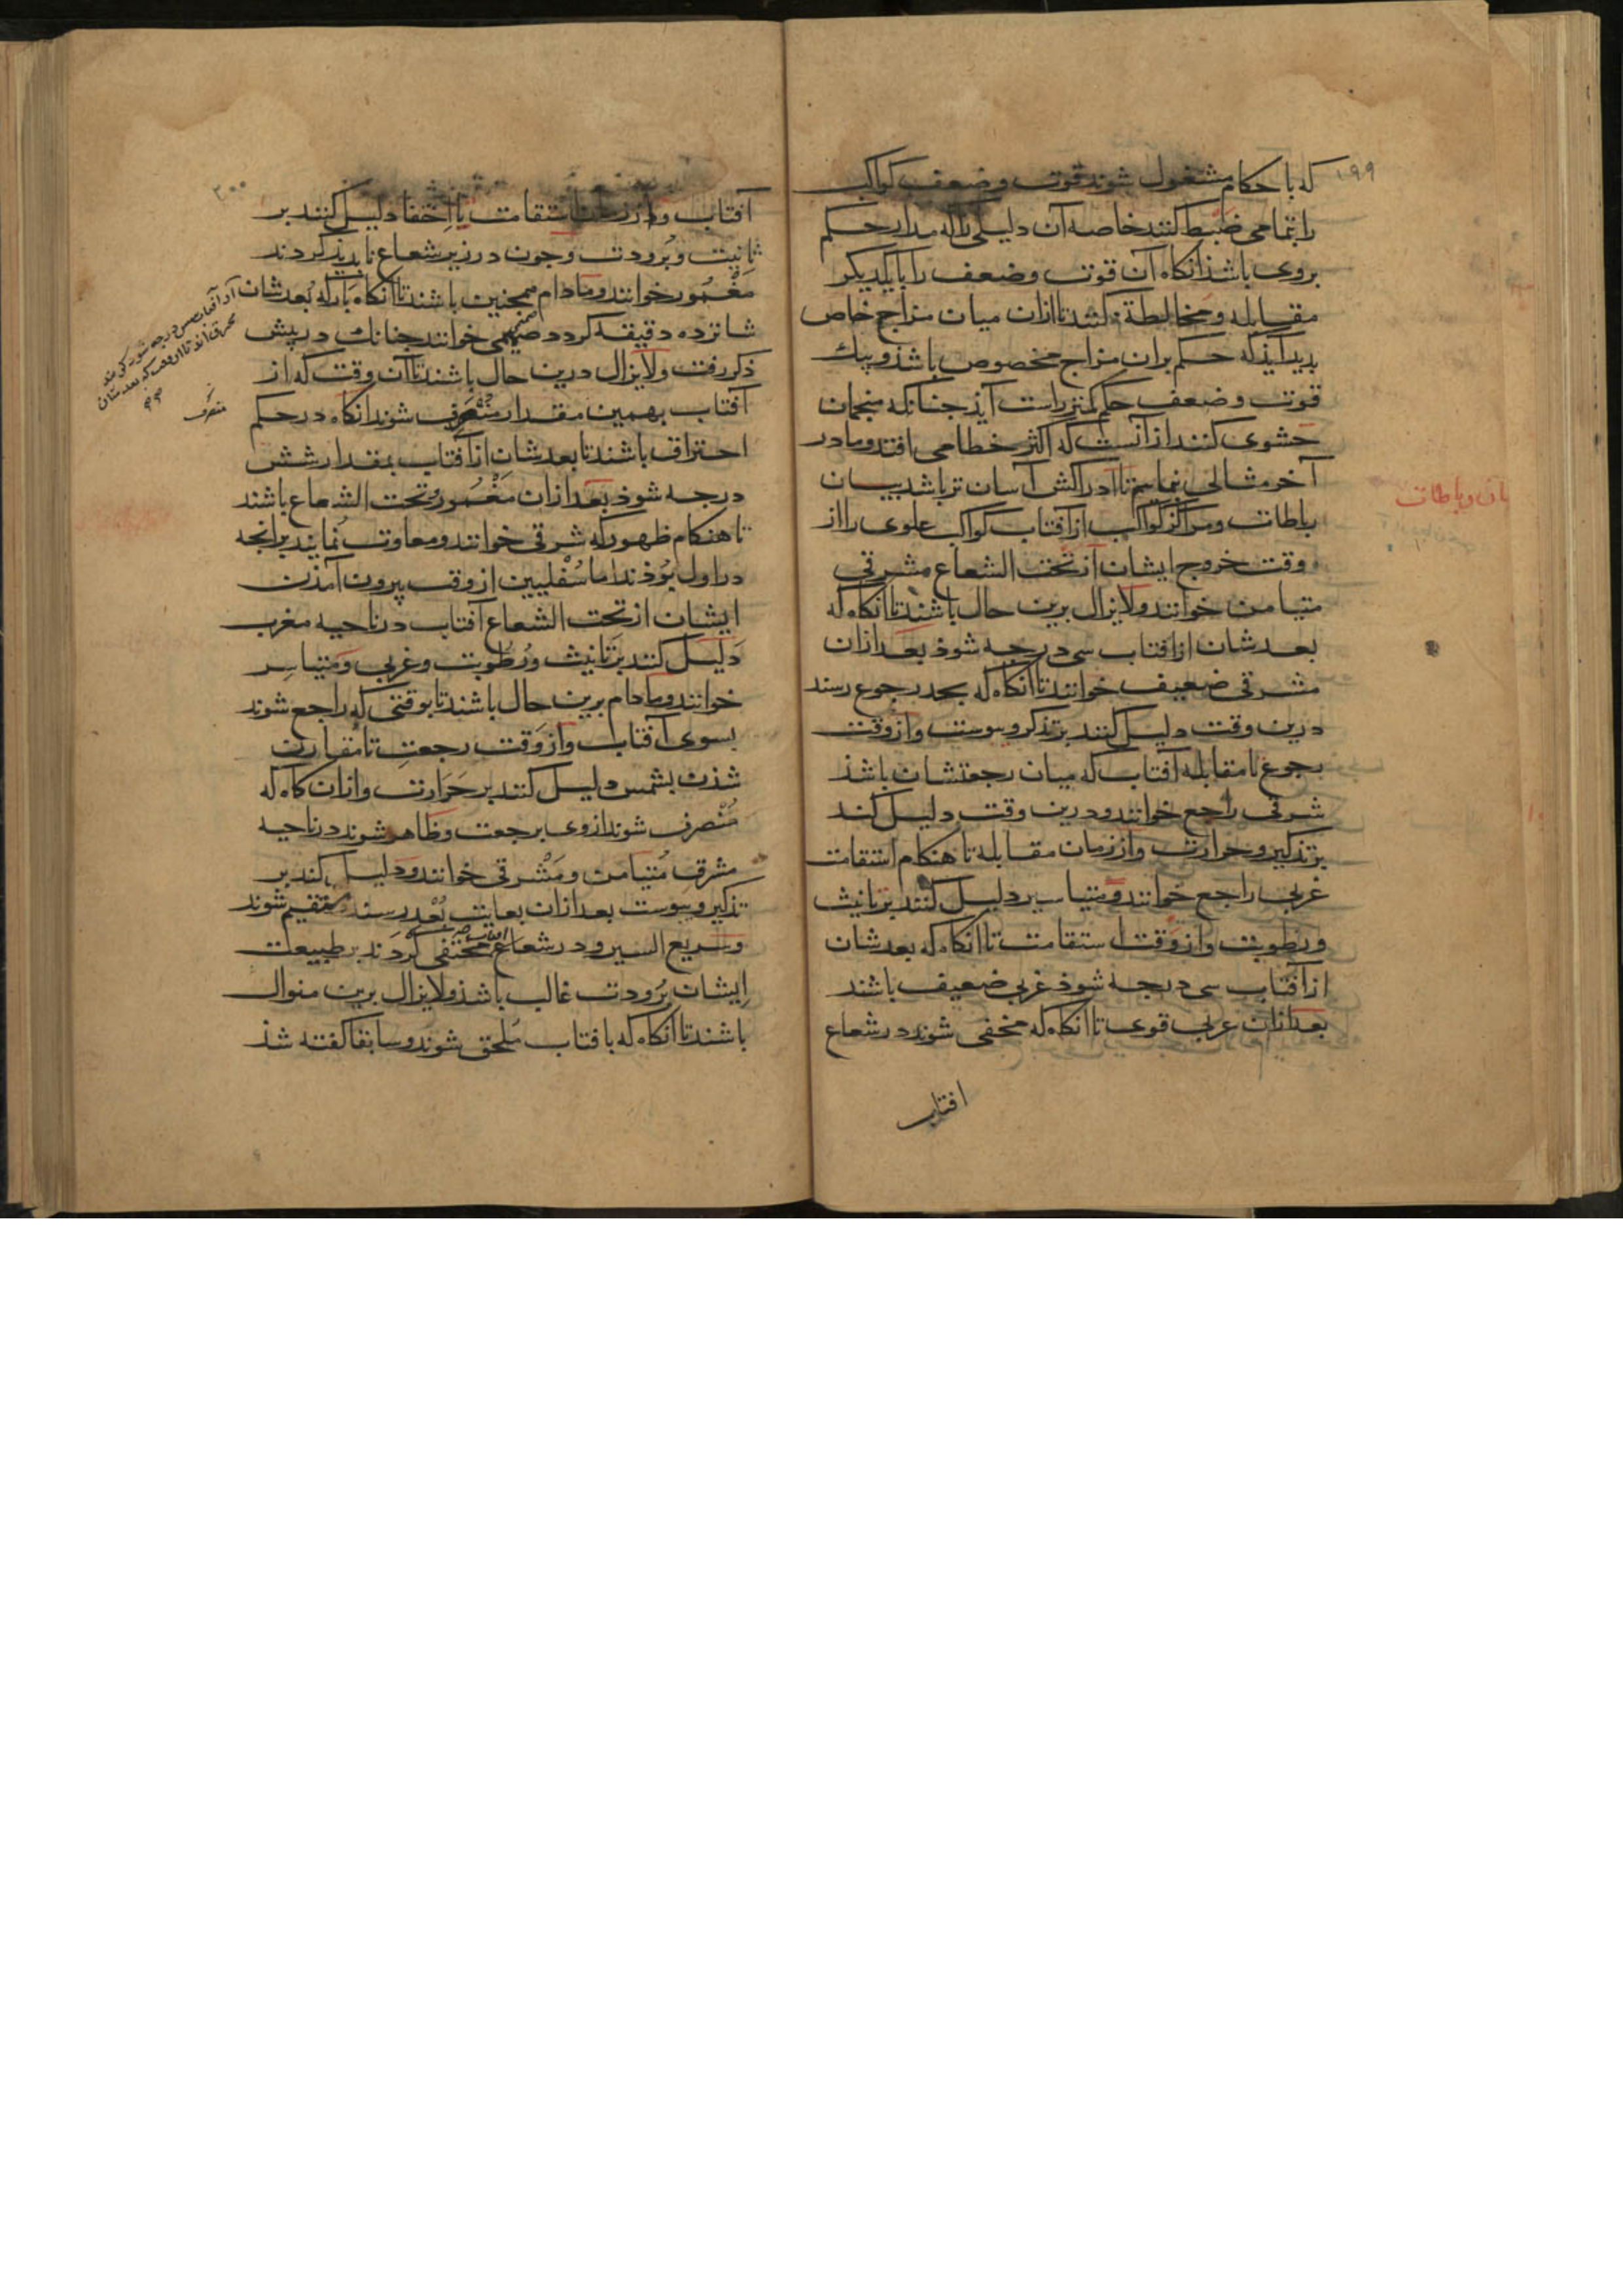 ۱۹۹
که باحکام مشغول شوند قوت وضعف کواکب
را بتمامی ضبط کنند خاصه آن دلیلی را که مدار حکم
بروی باشذ انکاه آن قوت وضعف را بایکدیکر
مقابله ومخالطة کنند تا ازان میان مزاج خاص
بدید آیذ که حکم بران مزاج مخصوص باشذ وبیک
قوت وضعف حکم کمتر راست آیذ جنانکه منجمان
حشوی کنند از آنست که اکثر خطا می افتد وما در
آخر مثالی بنماییم تا ادراکش آسان تر باشد بیان
رباطات ومراکز کواکب از آفتاب کواکب علوی را از
وقت خروج ایشان از تحت الشعاع مشرقی
متیامن خوانند ولایزال برین حال باشند تا انکاه که
بعدشان از افتاب سی درجه شوذ بعد ازان
مشرقی ضعیف خوانند تا انکاه که بحد رجوع رسند
درین وقت دلیل کنند بر تذکر ویبوست واز وقت
رجوع تا مقابله آفتاب که میان رجعتشان باشذ
شرقی راجع خوانند ودرین وقت دلیل کند
بر تذکیر وحرارت واز زمان مقابله تا هنکام استقامت
غربی راجع خوانند ومتیاسر دلیل کنند بر تانیث
ورطوبت واز وقت استقامت تا انکاه که بعدشان
از آفتاب سی درجه شوذ غربی ضعیف باشند
بعد ازان غربی قوی تا انکاه که مخفی شوند در شعاع
افتاب
بان رباطات
۲۰۰
آفتاب واز زمان استقامت تا اختفا دلیل کنند بر
تانیث وبرودت وجون در زیر شعاع نابدید کردند
مغمور خوانند ومادام همجنین باشند تا انکاه باز که بعدشان
شانزده دقیقه کردد صمیمی خوانند جنانک در پیش
ذکر رفت ولایزال درین حال باشند تا آن وقت که از
آفتاب بهمین مقدار منصرف شوند انکاه در حکم
احتراق باشند تا بعدشان از آفتاب بمقدار شش
درجه شوذ بعد ازان مغمور وتحت الشعاع باشند
تا هنکام ظهور که شرقی خوانند ومعاوت نمایند برانجه
در اول بوذند اما سفلیین از وقت بیرون آمذن
ایشان از تحت الشعاع آفتاب در ناحیه مغرب
دلیل کنند بر تانیث ورطوبت وغربی ومتیاسر
خوانند ومادام برین حال باشند تا بوقتی که راجع شوند
بسوی آفتاب واز وقت رجعت تا مقارن
شذن بشمس دلیل کنند بر حرارت وازان کاه که
منصرف شوند از وی برجعت وظاهر شوند در ناحیه
مشرق متیامن ومشرقی خوانند ودلیل کند بر
تذکیر ویبوست بعد ازان بغایت بعد رسند مستقیم شوند
وسریع السیر ودر شعاع مختفی کردند بر طبیعت
ایشان برودت غالب باشذ ولایزال برین منوال
باشند تا انکاه که بافتاب ملحق شوند وسابقا کفته شذ